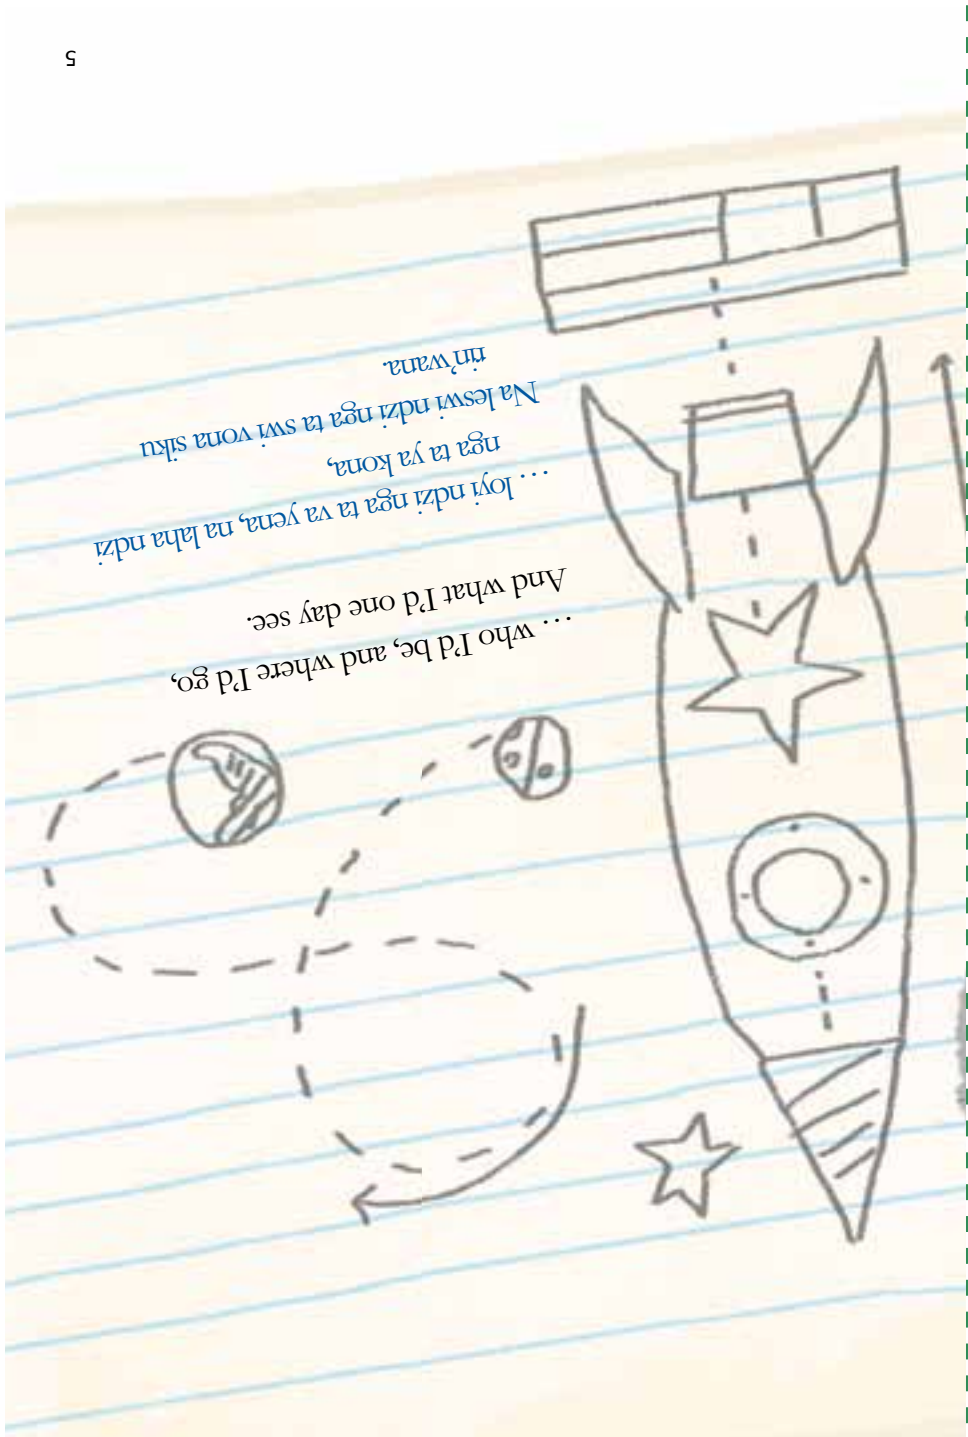 … who I'd be, and where I'd go,
And what I'd one day see.
… loyi ndzi nga ta va yena, na laha ndzi
nga ta ya kona,
Na leswi ndzi nga ta swi vona siku
rin'wana.
5